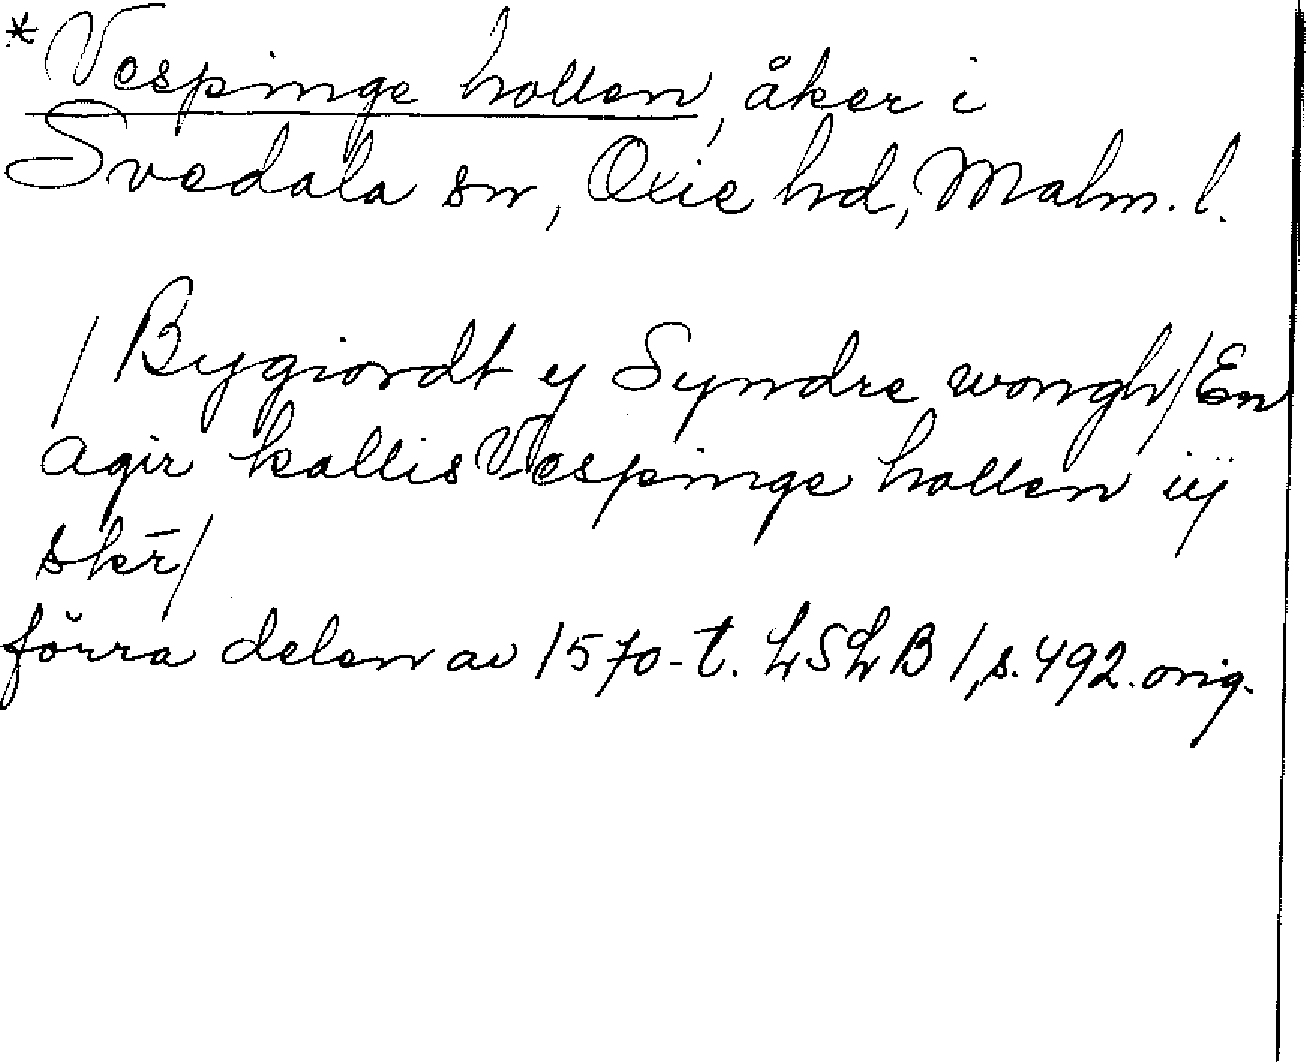 *Vespinge hollen, åker i
Svedala sn, Oxie hd, Malm. l.
/ Bygiordt y Syndre wongh / En
agir kallis Vespinge hollen iij
skr̄ /
förra delen av 1570-t. LSLB 1, s. 492. orig.